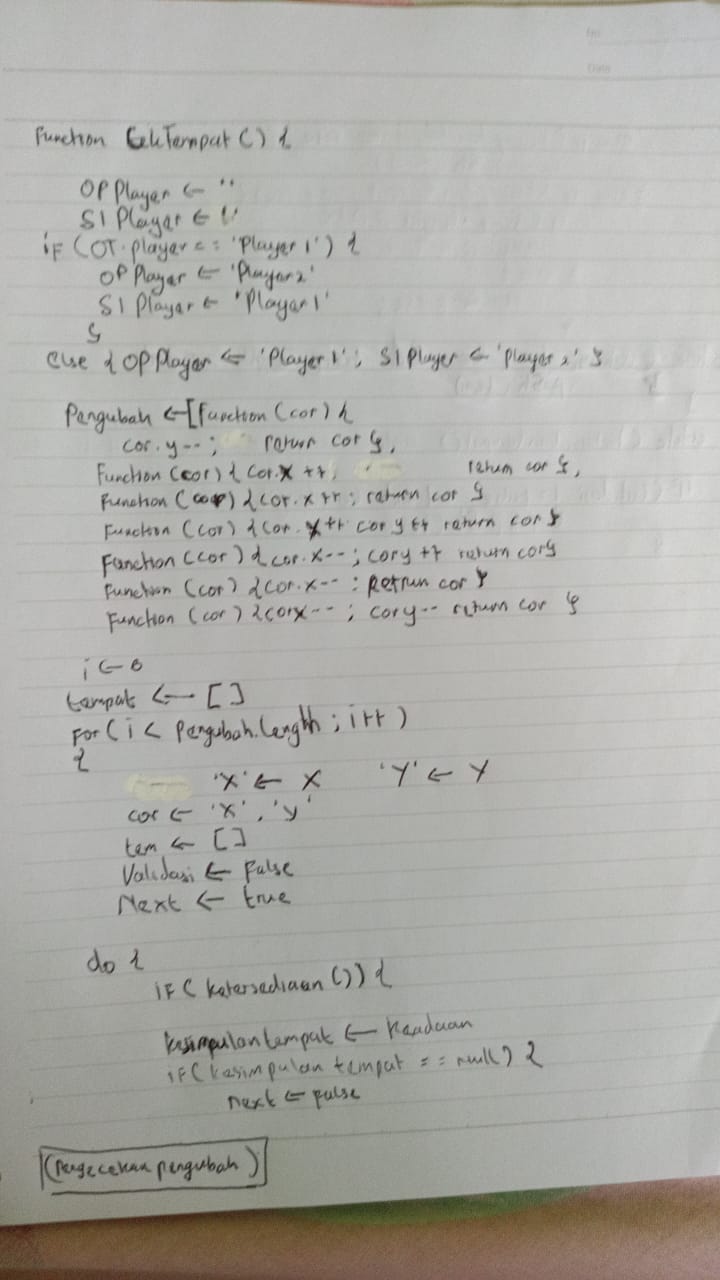 Function CekTempat () {
OP Player ← ''
SI Player ← ''
if (OT.player == 'Player 1') {
OP Player ← 'Player 2'
SI Player ← 'Player 1'
}
Else { OP Player ← 'Player 1'; SI Player ← 'Player 2' }
Pengubah ← [function (cor) {
cor.y--; return cor },
Function (cor) { cor.x ++; return cor },
Function (cor) { cor.x ++; return cor }
Function (cor) { cor.x++ cor y ++ return cor }
Function (cor) { cor.x--; cory ++ return cor }
Function (cor) { cor.x-- : Retrun cor }
Function (cor) { corx--; cory-- return cor }
i ← 0
tempat ← []
For (i < Pengubah.length ; i++)
{
'X' ← X 'Y' ← Y
cor ← 'X', 'y'
tem ← []
Validasi ← False
Next ← true
do {
IF ( ketersediaan ()) {
kesimpulan tempat ← Keadaan
if (kesimpulan tempat == null) {
next ← false
(Pengecekan pengubah)